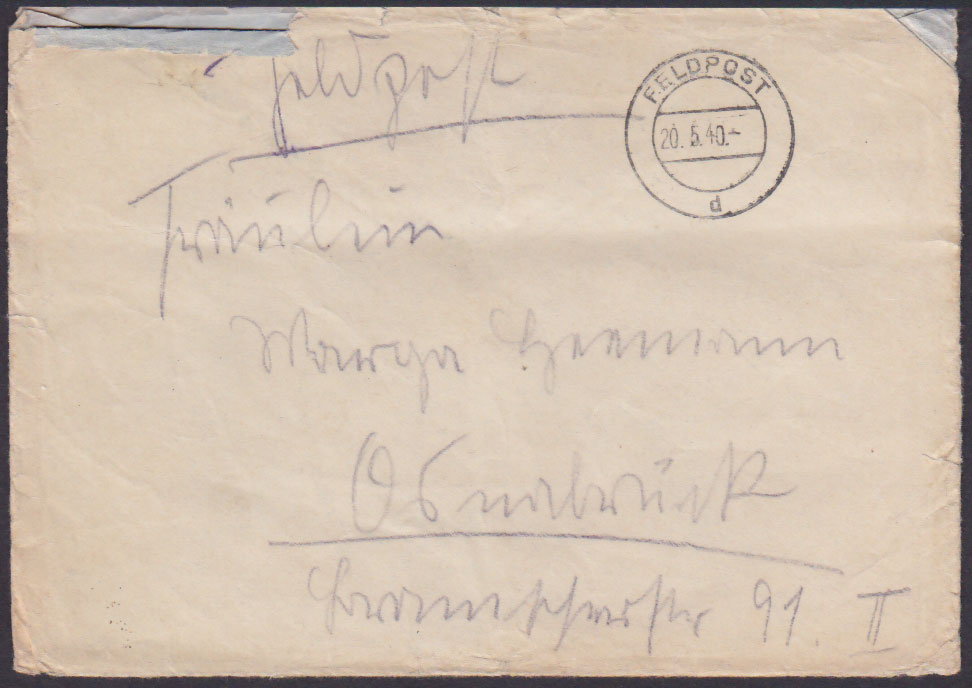 Feldpost
FELDPOST
20. 5.40.-
d
Fräulein
Marga Heemann
Osnabrück
Bramscherstr 91. II